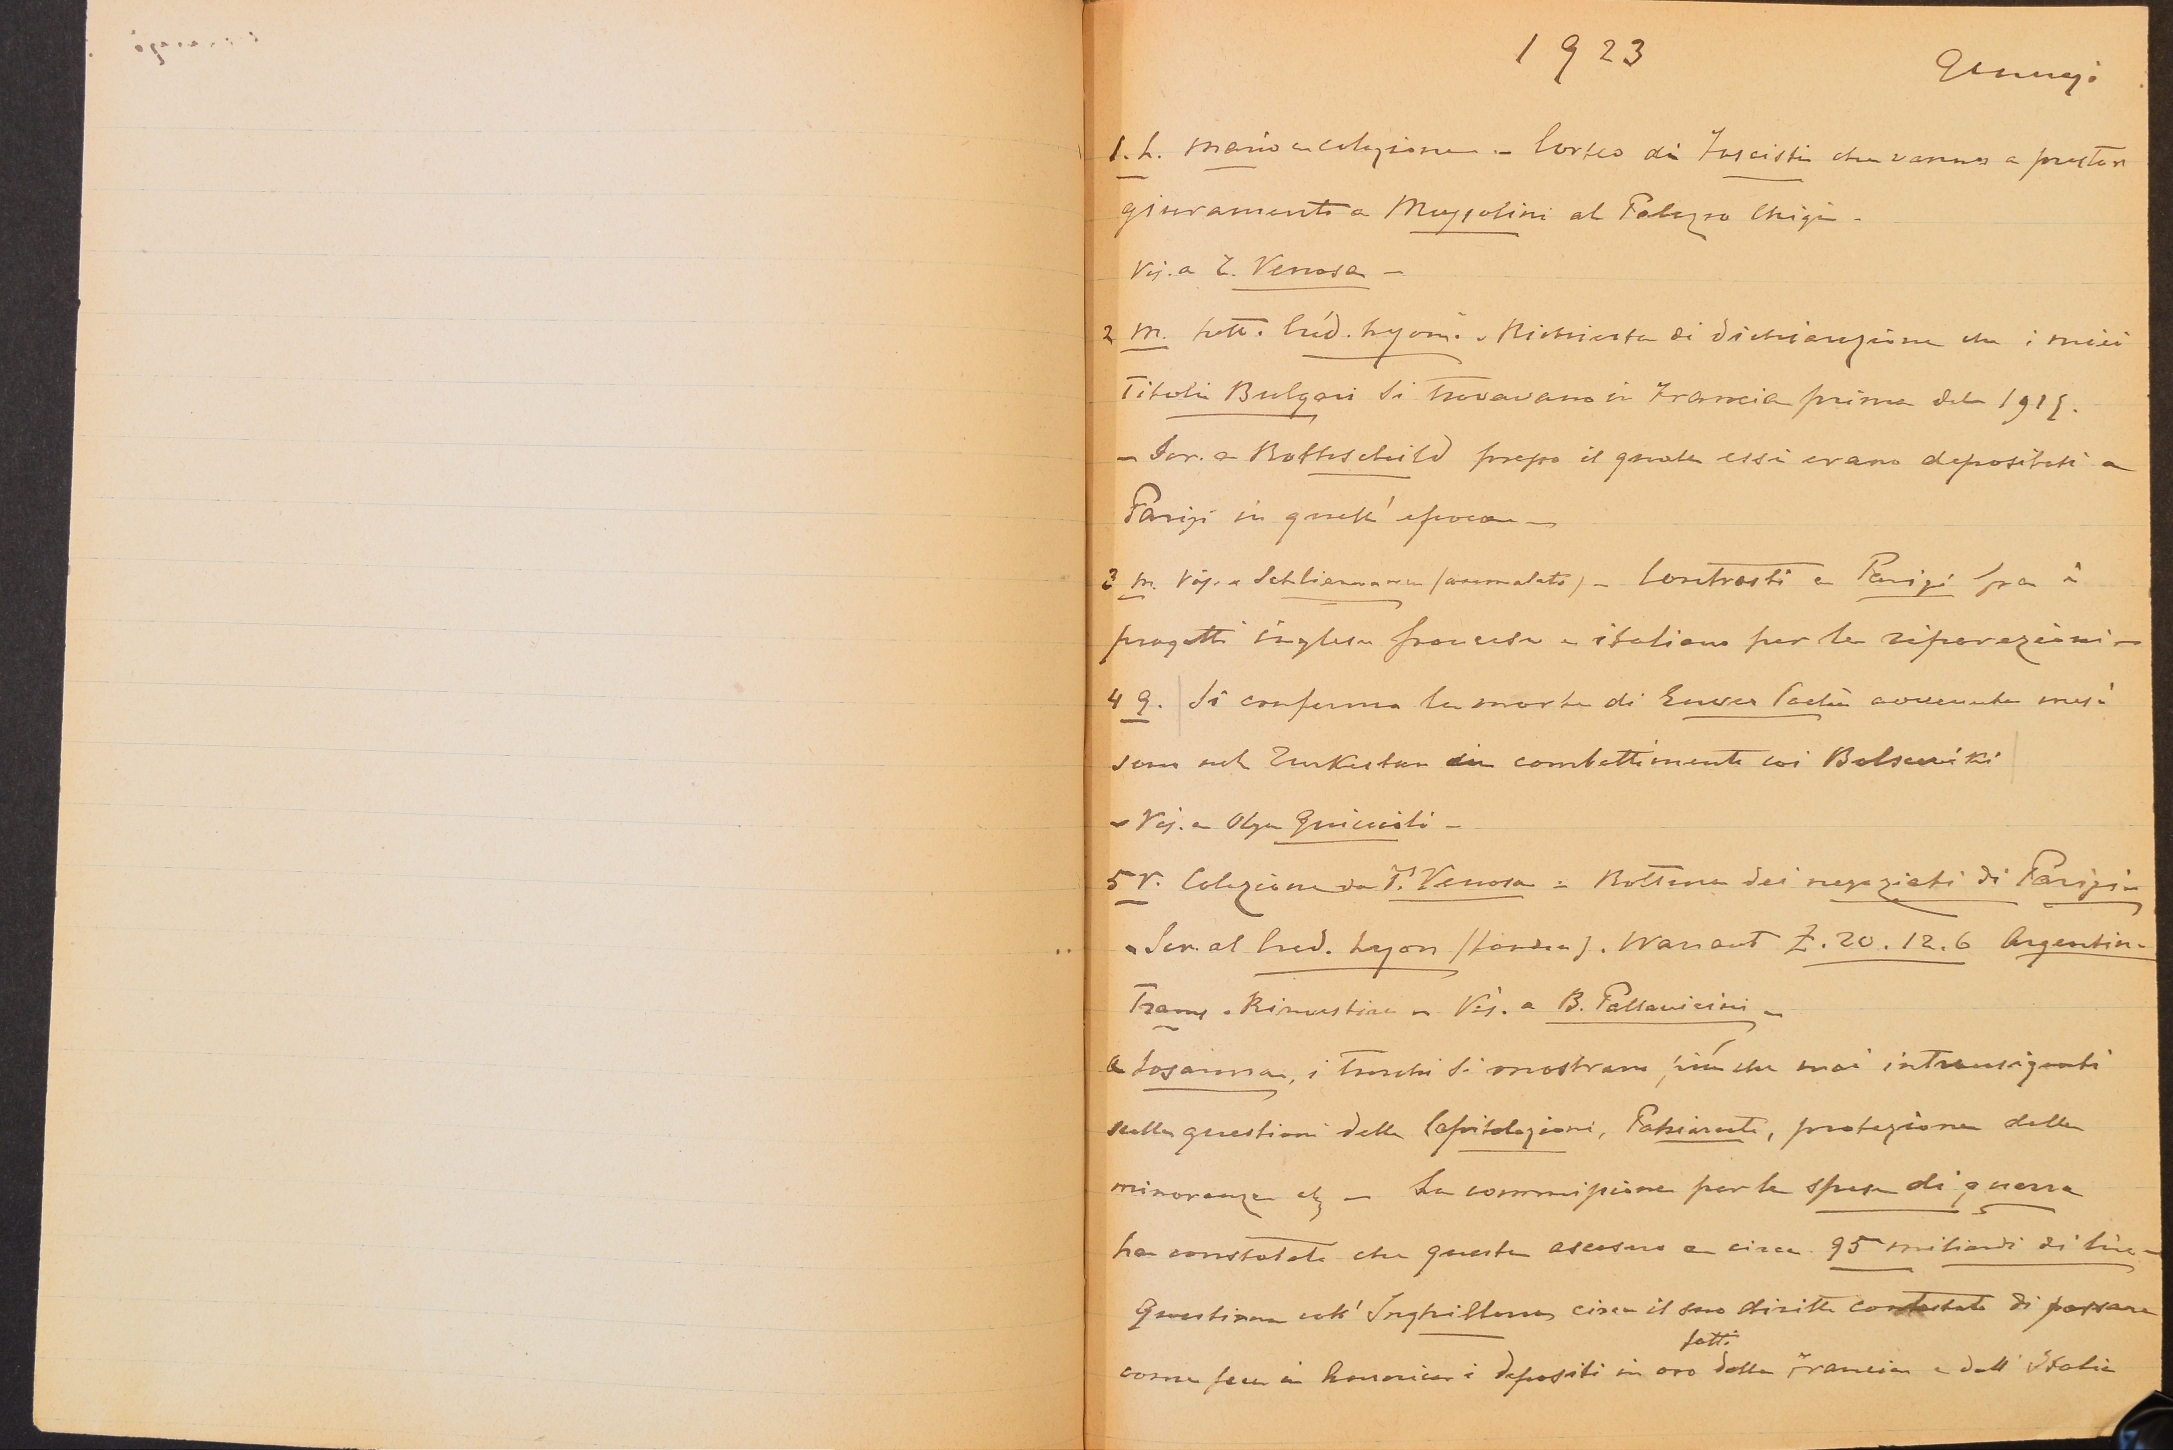 1923
Gennajo
1. L. Mario a colazione - Corteo di Fascisti che vanno a prestar
giuramento a Mussolini al Palazzo Chigi -
Vis. a T. Venosa -
2 M. Lett. Créd. Lyon. - Richiesta di dichiarazione che i miei
Titoli Bulgari si trovavano in Francia prima del 1915.
- Scr. a Rothschild presso il quale essi erano depositati a
Parigi in quell'epoca -
3 M. Vis. a Schliemann (ammalato) - Contrasti a Parigi fra i
progetti inglese francese e italiano per le riparazioni -
4 G. Si conferma la morte di Enver Pacha avvenuta mesi
sono nel Turkestan in combattimento coi Bolseviki
- Vis. a Olga Guiccioli -
5 V. Colazione da T. Venosa - Rottura dei negoziati di Parigi -
- Scr. al Cred. Lyon (Londra). Warrant £. 20.12.6 Argentin-
Tram - Vis. a B. Pallavicini -
A Losanna, i Turchi si mostrano più che mai intransigenti
sulle questioni delle Capitolazioni, Patriarcato, protezione delle
minoranze etz - La commissione per le spese di guerra
ha constatato che queste ascesero a circa 95 miliardi di lire -
Questione coll'Inghilterra circa il suo diritto contestato di passare
come fece in America i depositi in oro fatti dalla Francia e dall'Italia